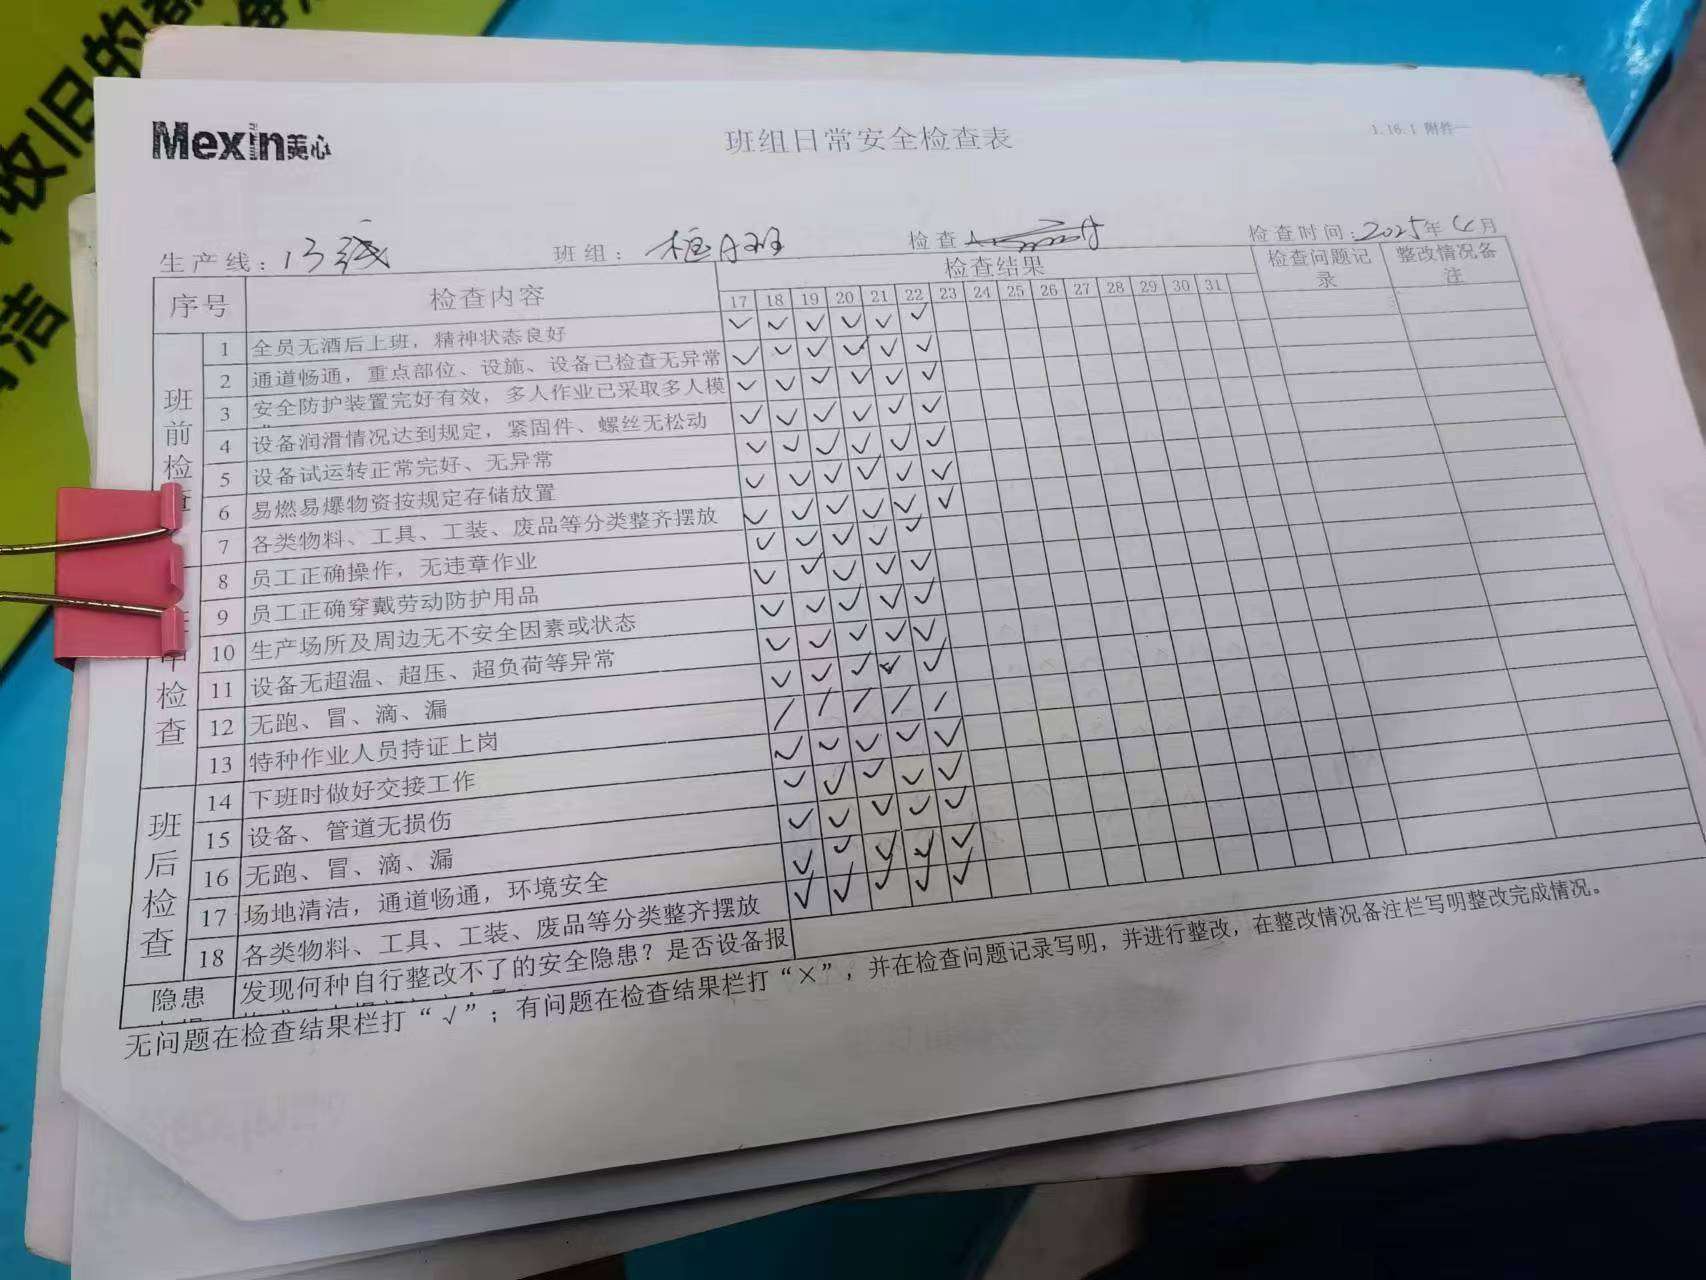 Mexin美心
班组日常安全检查表
1.16.1 附件一
生产线：13线 班组： 框A班 检查 检查时间：2025年4月
序号 检查内容 检查结果 检查问题记录 整改情况备注
17 18 19 20 21 22 23 24 25 26 27 28 29 30 31
班前检查
1 全员无酒后上班，精神状态良好 ✓ ✓ ✓ ✓ ✓ ✓
2 通道畅通，重点部位、设施、设备已检查无异常 ✓ ✓ ✓ ✓ ✓ ✓
3 安全防护装置完好有效，多人作业已采取多人模 ✓ ✓ ✓ ✓ ✓ ✓
4 设备润滑情况达到规定，紧固件、螺丝无松动 ✓ ✓ ✓ ✓ ✓ ✓
5 设备试运转正常完好、无异常 ✓ ✓ ✓ ✓ ✓ ✓
6 易燃易爆物资按规定存储放置 ✓ ✓ ✓ ✓ ✓ ✓
7 各类物料、工具、工装、废品等分类整齐摆放 ✓ ✓ ✓ ✓ ✓ ✓
中检查
8 员工正确操作，无违章作业 ✓ ✓ ✓ ✓ ✓
9 员工正确穿戴劳动防护用品 ✓ ✓ ✓ ✓ ✓
10 生产场所及周边无不安全因素或状态 ✓ ✓ ✓ ✓ ✓
11 设备无超温、超压、超负荷等异常 ✓ ✓ ✓ ✓ ✓
12 无跑、冒、滴、漏 ✓ ✓ ✓ ✓ ✓
13 特种作业人员持证上岗 / / / / /
班后检查
14 下班时做好交接工作 ✓ ✓ ✓ ✓ ✓
15 设备、管道无损伤 ✓ ✓ ✓ ✓ ✓
16 无跑、冒、滴、漏 ✓ ✓ ✓ ✓ ✓
17 场地清洁，通道畅通，环境安全 ✓ ✓ ✓ ✓ ✓
18 各类物料、工具、工装、废品等分类整齐摆放 ✓ ✓ ✓ ✓ ✓
隐患 发现何种自行整改不了的安全隐患？是否设备报
无问题在检查结果栏打“√”；有问题在检查结果栏打“×”，并在检查问题记录写明，并进行整改，在整改情况备注栏写明整改完成情况。
收旧的
洁